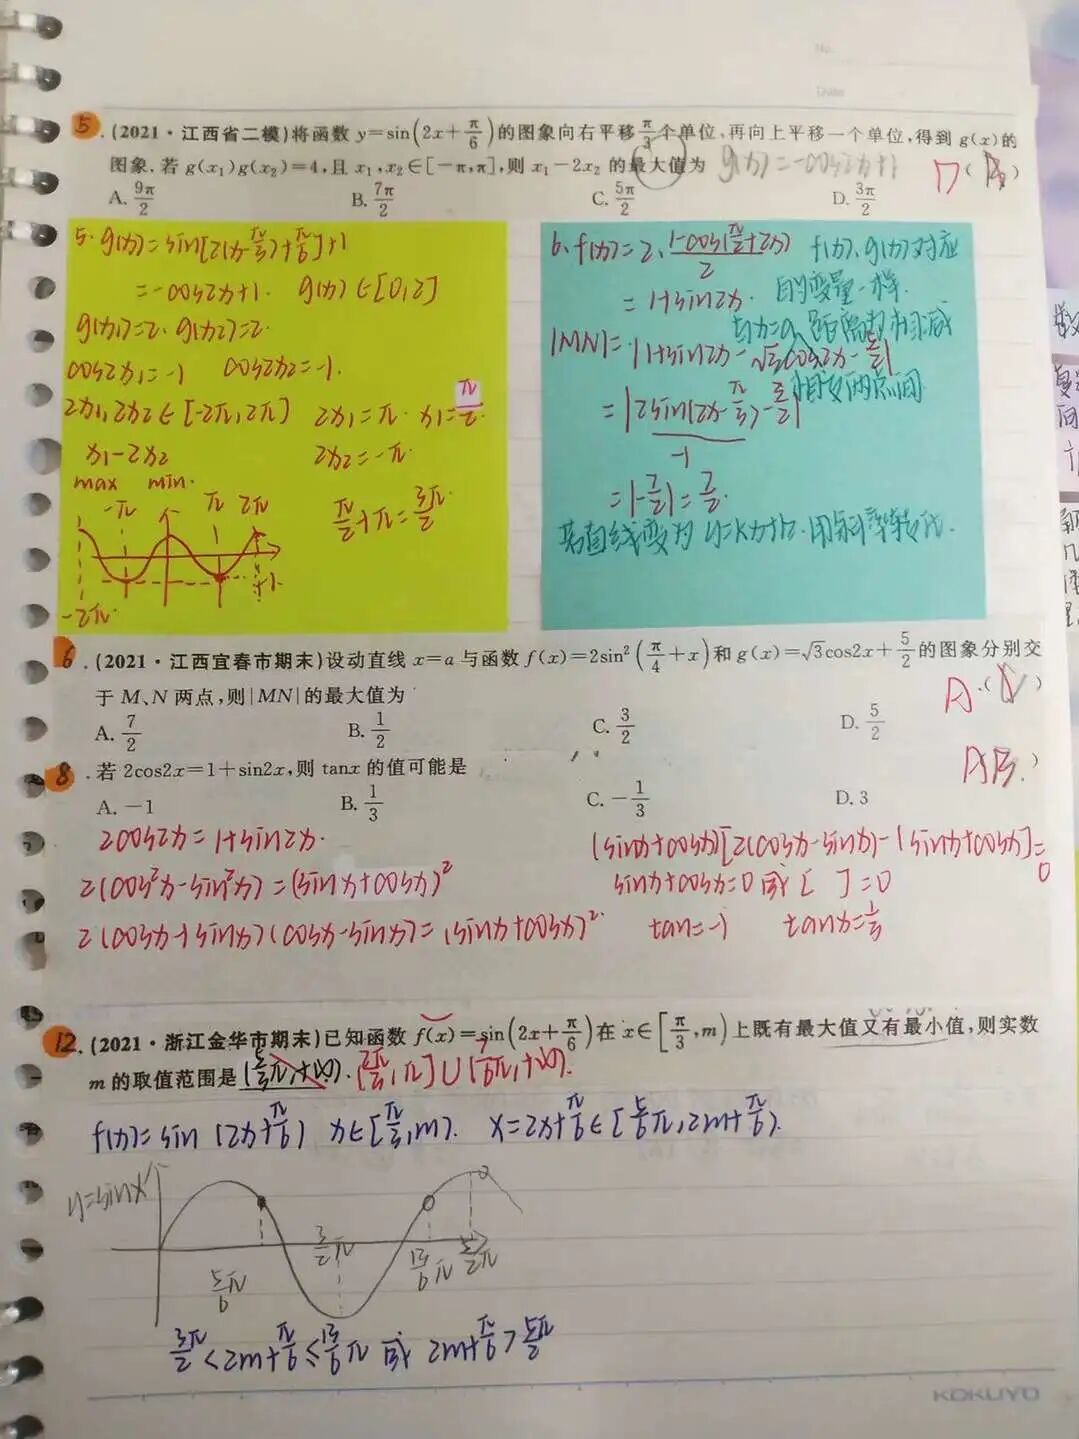 No.
Date
5.(2021·江西省二模)将函数 y=sin(2x+π/6)的图象向右平移π/3个单位,再向上平移一个单位,得到 g(x)的
图象.若 g(x₁)g(x₂)=4,且 x₁,x₂∈[-π,π],则 x₁-2x₂ 的最大值为 g(x)=-cos2x+1 D ( )
A. 9π/2 B. 7π/2 C. 5π/2 D. 3π/2
5. g(x)=sin[2(x-π/3)+π/6]+1
=-cos2x+1. g(x)∈[0,2]
g(x₁)=2. g(x₂)=2.
cos2x₁=-1 cos2x₂=-1.
2x₁,2x₂∈[-2π,2π] 2x₁=π. x₁=π/2.
x₁-2x₂ 2x₂=-π.
max min.
π/2+π=3π/2
-π π 2π
-2π
6. f(x)=2·(1-cos(π/2+2x))/2 f(x)、g(x)对应
=1+sin2x. 的变量一样.
与x=a
|MN|=|1+sin2x-√3cos2x-5/2| 相交两点间
=|2sin(2x-π/3)-3/2|
-1
=|-7/2|=7/2.
若直线变为 y=kx+b.用斜率转化.
6.(2021·江西宜春市期末)设动直线 x=a 与函数 f(x)=2sin²(π/4+x)和 g(x)=√3cos2x+5/2的图象分别交
于 M、N 两点,则|MN|的最大值为 A.( )
A. 7/2 B. 1/2 C. 3/2 D. 5/2
8.若 2cos2x=1+sin2x,则 tanx 的值可能是 AB.)
A. -1 B. 1/3 C. -1/3 D. 3
2cos2x=1+sin2x.
2(cos²x-sin²x)=(sinx+cosx)²
2(cosx+sinx)(cosx-sinx)=(sinx+cosx)².
(sinx+cosx)[2(cosx-sinx)-(sinx+cosx]=0
sinx+cosx=0 或 [ ]=0
tan=-1 tanx=1/3
12.(2021·浙江金华市期末)已知函数 f(x)=sin(2x+π/6)在 x∈[π/3,m)上既有最大值又有最小值,则实数
m 的取值范围是 (2π/3,π]∪(7/6π,+∞).
f(x)=sin(2x+π/6) x∈[π/3,m). X=2x+π/6∈[5/6π,2m+π/6).
y=sinX
5/6π 3/2π 13/6π 5/2π
3π/2<2m+π/6≤13/6π 或 2m+π/6>5π/2
KOKUYO